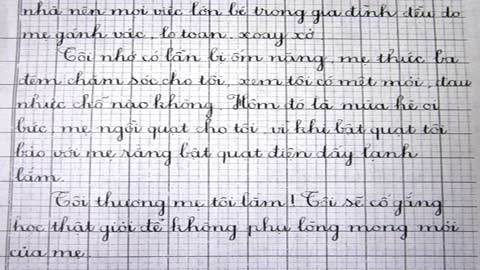 nhà nên mọi việc lớn bé trong gia đình đều do
mẹ gánh vác, lo toan, xoay xở.
Tôi nhớ có lần bị ốm nặng, mẹ thức ba
đêm chăm sóc cho tôi, xem tôi có mệt mỏi, đau
nhức chỗ nào không. Hôm đó là mùa hè oi
bức, mẹ ngồi quạt cho tôi vì khi bật quạt tôi
bảo với mẹ rằng bật quạt điện đấy lạnh
lắm.
Tôi thương mẹ tôi lắm! Tôi sẽ cố gắng
học thật giỏi để không phụ lòng mong mỏi
của mẹ.